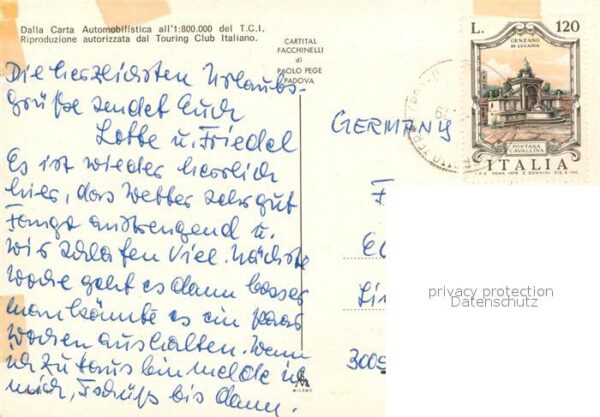 Dalla Carta Automobilistica all'1:800.000 del T.C.I.
Riproduzione autorizzata dal Touring Club Italiano.
CARTITAL
FACCHINELLI
di
PAOLO PEGE
PADOVA
L. 120
GENZANO
DI LUCANIA
FONTANA
CAVALLINA
ITALIA
Die herzlichsten Urlaubs-
grüße sendet Euch
Lotte u. Friedel
Es ist wieder herrlich
hier, das Wetter sehr gut
anstrengend u.
wir schlafen viel. Nächste
Woche geht es dann besser
man könnte es ein paar
Wochen aushalten. Wenn
ich zu Haus bin melde ich
mich, bis dann.
GERMANY
F
Li
300
privacy protection
Datenschutz
MILANO